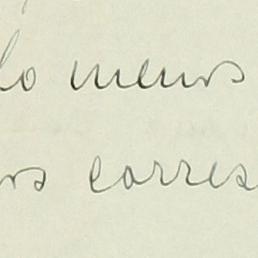 lo menos
os corres